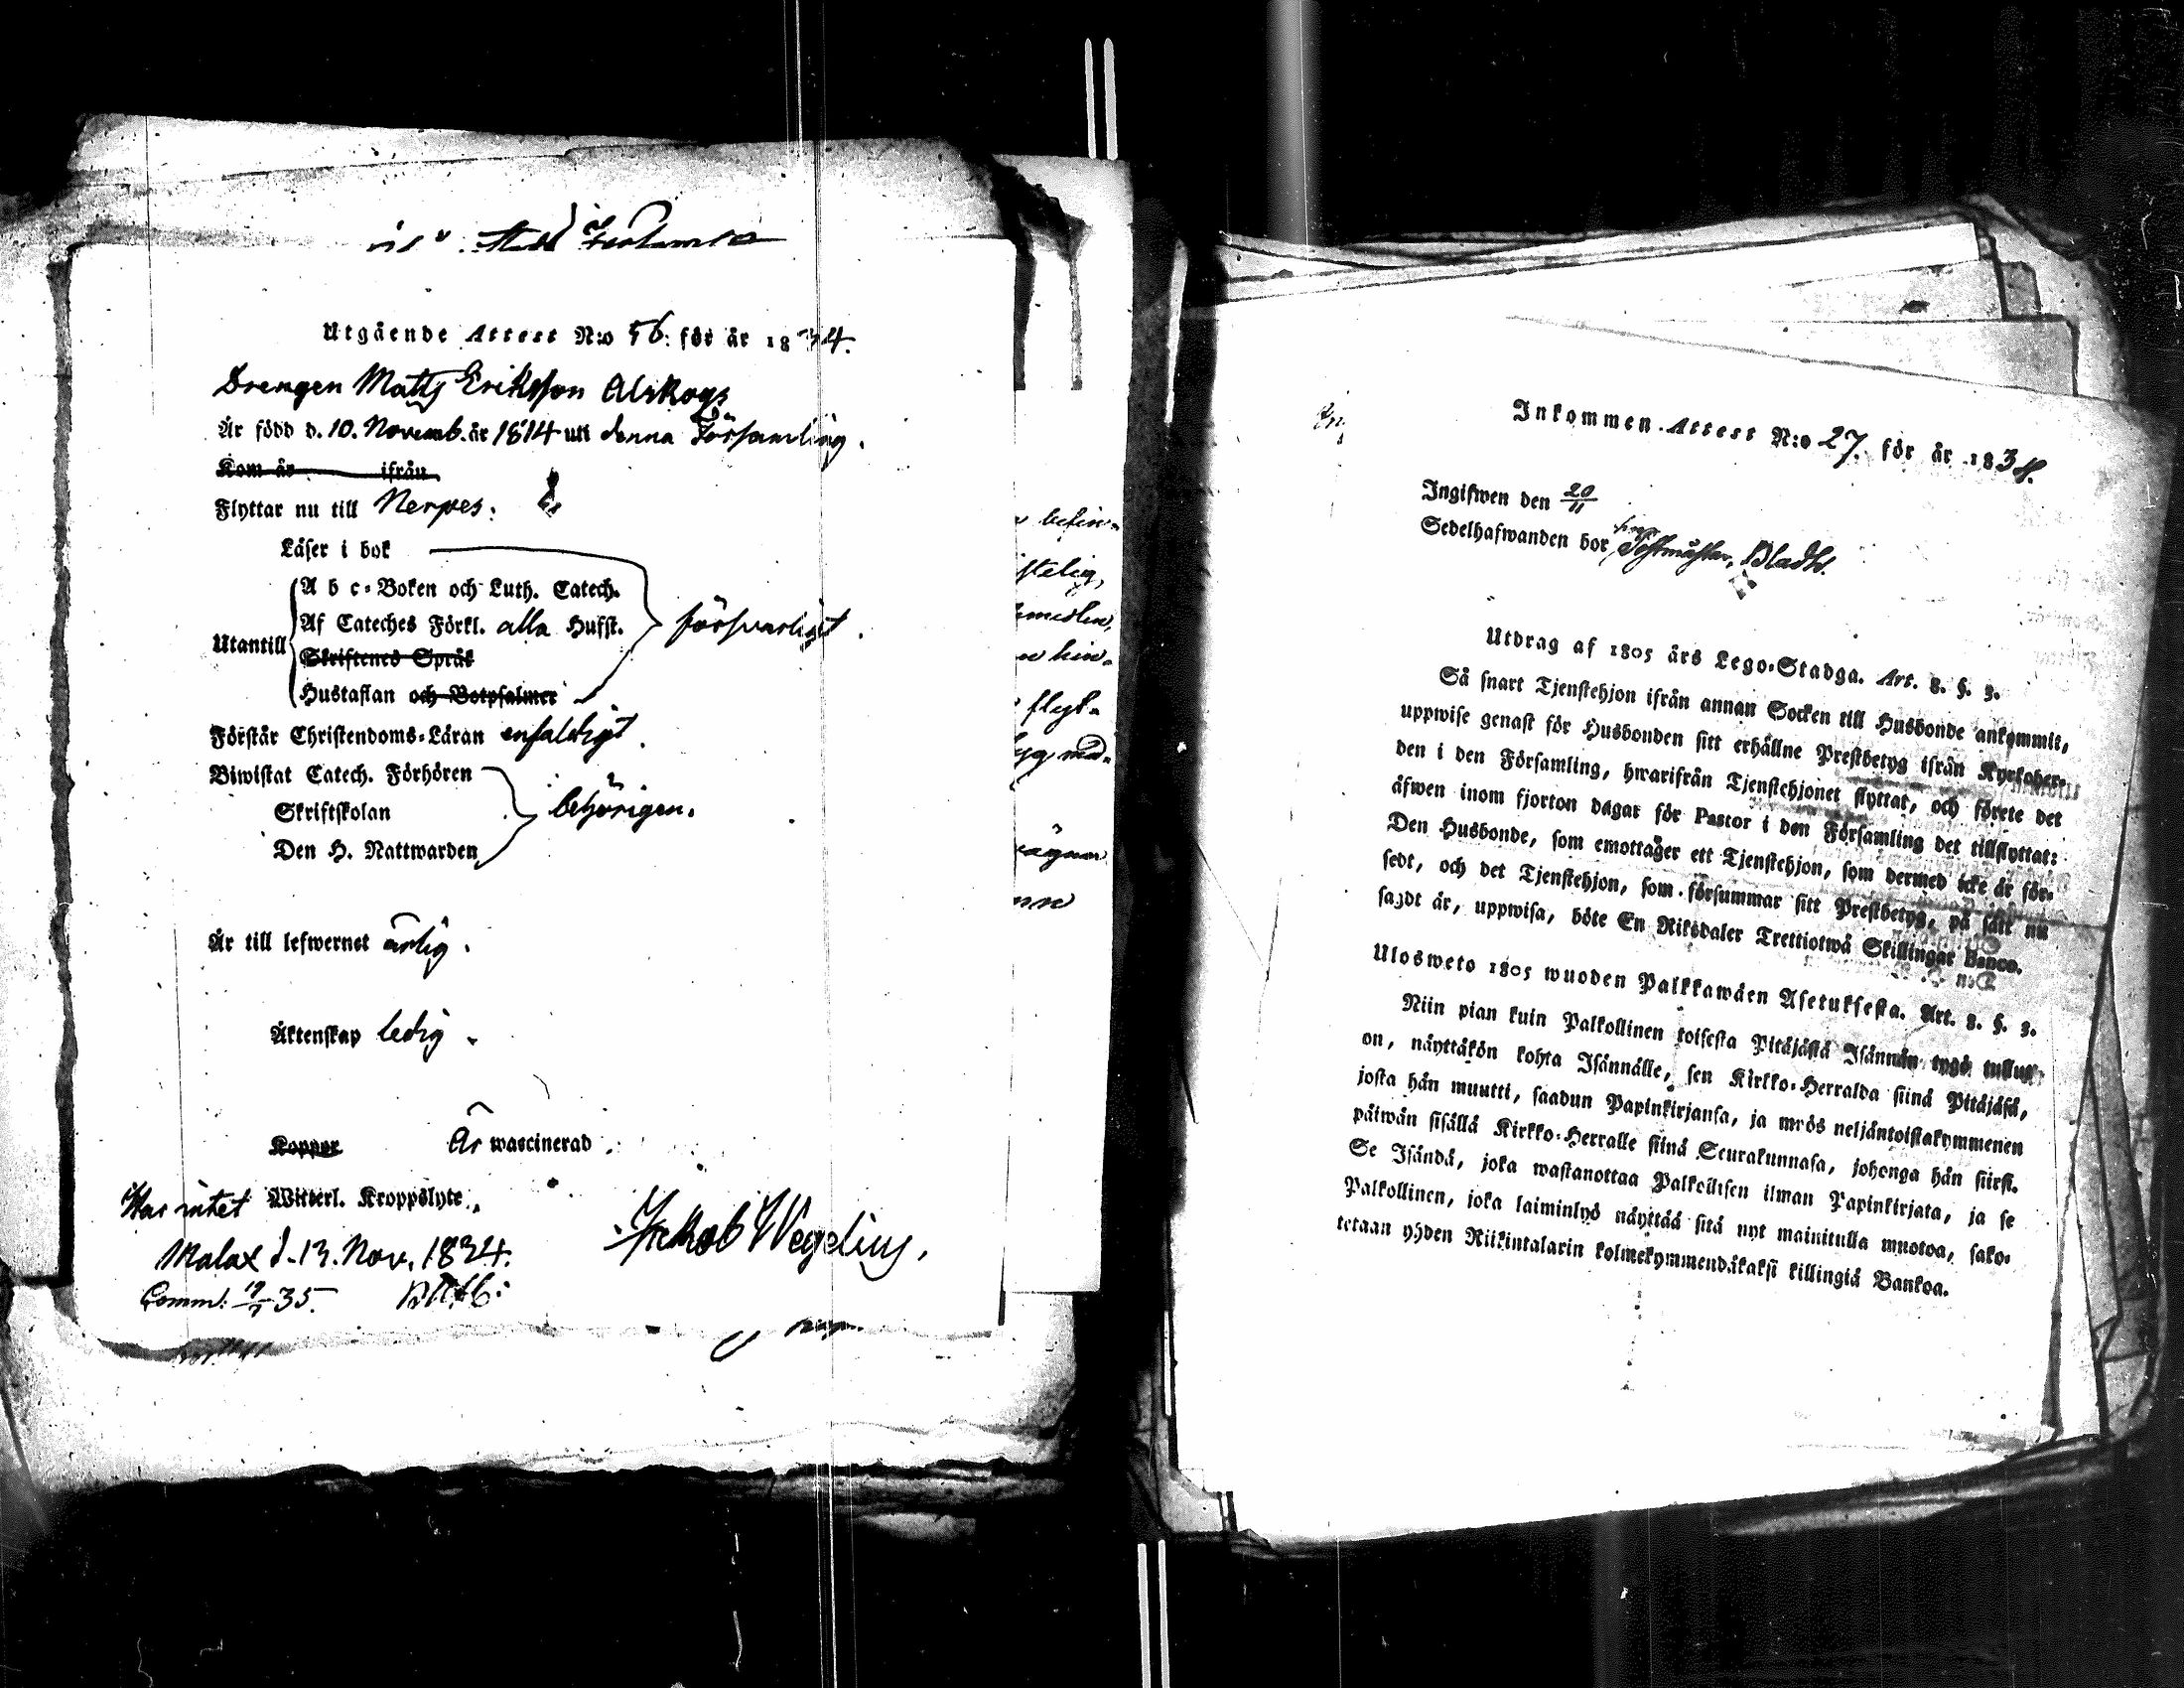 Utgående Attest N:o 56: för år 1834.
Drengen Matts Eriksson Alskogs
Är född d. 10. Novemb. år 1814 uti denna Församling.
Kom år ifrån
Flyttar nu till Nerpes.
Läser i bok
A b c-Boken och Luth. Catech.
Af Cateches Förkl. alla Hufst.
försvarligt.
Utantill
Skriftenes Språk
Hustaflan och Botpsalmer
Förstår Christendoms-Läran enfaldigt.
Biwistat Catech. Förhören
Skriftskolan
behörigen.
Den H. Nattwarden
Är till lefwernet ärlig.
Äktenskap ledig.
Koppor Är waccinerad.
Har intet Witterl. Kroppslyte.
Jakob Wegelius.
Malax d. 13. Nov. 1834.
Comm: 35.
befin-
stelig,
n hin-
flyt-
Inkommen Attest N:o 27. för år 1834.
Ingifwen den 20/11
Sedelhafwanden bor hos Postmästar, Bladh.
Utdrag af 1805 års Lego-Stadga. Art. 3. §. 3.
Så snart Tjenstehjon ifrån annan Socken till Husbonde ankommit,
uppwise genast för Husbonden sitt erhållne Prestbetyg ifrån Kyrkoher-
den i den Församling, hwarifrån Tjenstehjonet flyttat, och förete det
äfwen inom fjorton dagar för Pastor i den Församling det tillflyttat:
Den Husbonde, som emottager ett Tjenstehjon, som dermed icke är för-
sedt, och det Tjenstehjon, som försummar sitt Prestbetyg, på sätt nu
sagdt är, uppwisa, böte En Riksdaler Trettiotwå Skillingar Banco.
Ulosweto 1805 wuoden Palkkawäen Asetuksesta. Art. 3. §. 3.
Niin pian kuin Palkollinen toisesta Pitäjästä Isännän tygö tullut
on, näyttäkön kohta Isännälle, sen Kirkko-Herralda siinä Pitäjäsä,
josta hän muutti, saadun Papinkirjansa, ja myös neljäntoistakymmenen
päiwän sisällä Kirkko-Herralle siinä Seurakunnasa, johonga hän siirsi.
Se Isändä, joka wastanottaa Palkollisen ilman Papinkirjata, ja se
Palkollinen, joka laiminlyö näyttää sitä nyt mainitulla muotoa, sako-
tetaan yhden Riikintalarin kolmekymmendäkaksi killingiä Bankoa.